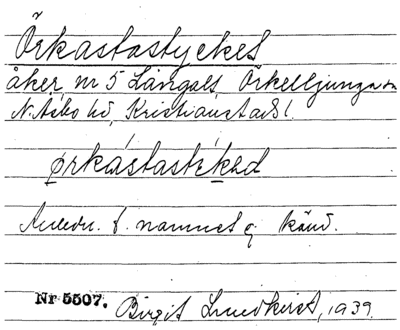 Örkastastycket
åker, nr 5 Långalt, Örkelljunga sn
N. Åsbo hd, Kristianstads l.
ørkástastýkəd
Anledn. t. namnet ej känd.
Nr 5507. Birgit Lundkvist, 1939.